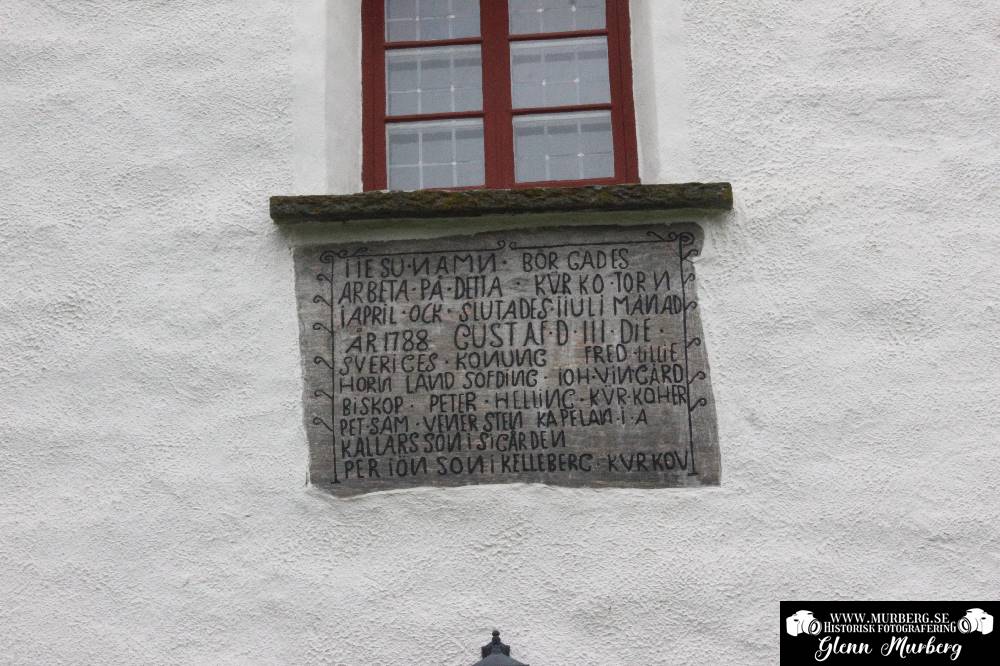 I IESU·NAMN· BÖRGADES
ARBETA·PÅ·DETTA·KÜRKO·TORN
I APRIL·OCK·SLUTADES·I IULI MÅNAD
ÅR 1788 GUSTAF·D·III·DIE·
SVERIGES·KONUNG FRED·LILLIE
HORN LAND SÖFDING·IOH·VINGÅRD
BISKOP· PETER·HELLING·KÜR·KOHER
PET·SAM·VENERSTEN KAPELAN·I·A
KALLARSSON I SIGÅRDEN
PER IÖNSON I KELLEBERG·KVRKOV
WWW.MURBERG.SE
HISTORISK FOTOGRAFERING
Glenn Murberg